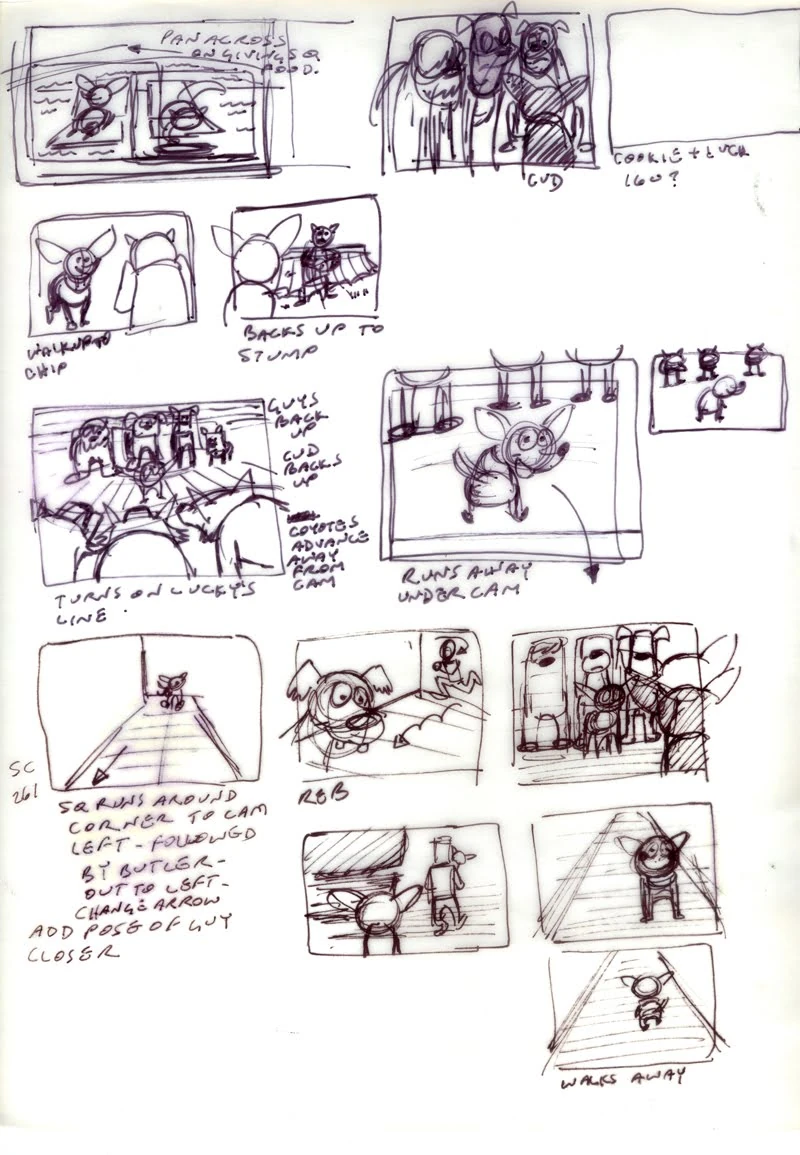 PAN ACROSS
ON GIVING SQ
FOOD.
CUD
COOKIE + LUCK
160?
WALK UP TO
CHIP
BACKS UP TO
STUMP
GUYS
BACK
UP
CUD
BACKS
UP
COYOTES
ADVANCE
AWAY
FROM
CAM
TURNS ON LUCKY'S
LINE.
RUNS AWAY
UNDER CAM
SC
261
SQ RUNS AROUND
CORNER TO CAM
LEFT - FOLLOWED
BY BUTLER -
OUT TO LEFT -
CHANGE ARROW
ADD POSE OF GUY
CLOSER
REB
WALKS AWAY